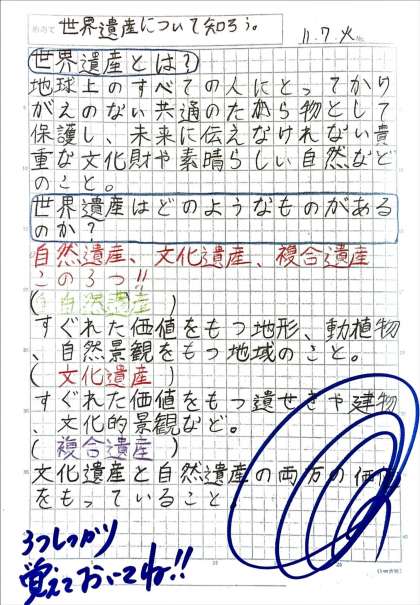 めあて 世界遺産について知ろう。
11.7 火 No.
世界遺産とは?
地球上のすべての人にとってかけ
がえのない共通のたから物として
保護し、未来に伝えなければない貴
重な文化財や素晴らしい自然など
のこと。
世界遺産はどのようなものがある
のか?
自然遺産、文化遺産、複合遺産
この3つ!!
(自然遺産)
すぐれた価値をもつ地形、動植物
、自然景観をもつ地域のこと。
(文化遺産)
すぐれた価値をもつ遺せきや建物
、文化的景観など。
(複合遺産)
文化遺産と自然遺産の両方の価値
をもっていること。
3つしっかり
覚えておいてね!!